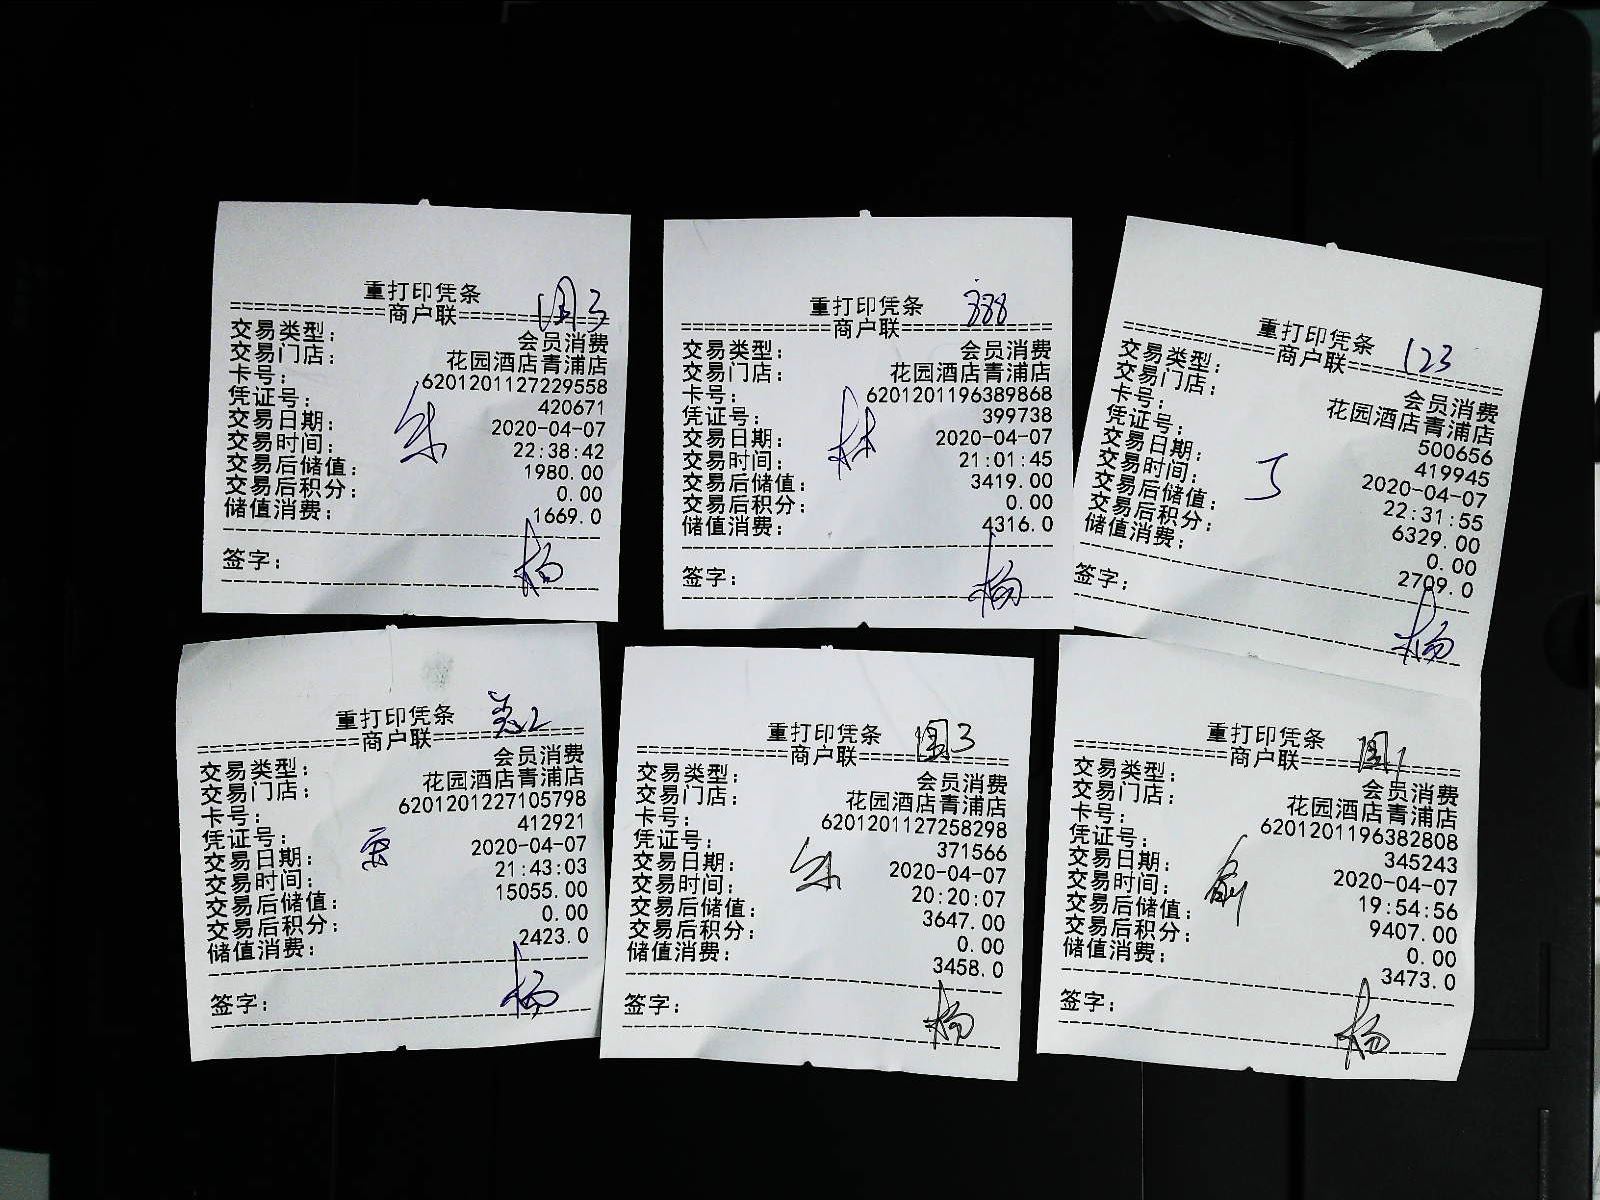 重打印凭条
商户联
交易类型： 会员消费
交易门店： 花园酒店青浦店
卡号： 6201201127229558
凭证号： 420671
交易日期： 2020-04-07
交易时间： 22:38:42
交易后储值： 1980.00
交易后积分： 0.00
储值消费： 1669.0
签字： 杨
重打印凭条 888
商户联
交易类型： 会员消费
交易门店： 花园酒店青浦店
卡号： 6201201196389868
凭证号： 399738
交易日期： 2020-04-07
交易时间： 21:01:45
交易后储值： 3419.00
交易后积分： 0.00
储值消费： 4316.0
林
签字： 杨
重打印凭条 123
商户联
交易类型： 会员消费
交易门店： 花园酒店青浦店
卡号： 500656
凭证号： 419945
交易日期： 2020-04-07
交易时间： 22:31:55
交易后储值： 6329.00
交易后积分： 0.00
储值消费： 2709.0
签字： 杨
重打印凭条
商户联
交易类型： 会员消费
交易门店： 花园酒店青浦店
卡号： 6201201227105798
凭证号： 412921
交易日期： 2020-04-07
交易时间： 21:43:03
交易后储值： 15055.00
交易后积分： 0.00
储值消费： 2423.0
签字： 杨
重打印凭条
商户联
交易类型： 会员消费
交易门店： 花园酒店青浦店
卡号： 6201201127258298
凭证号： 371566
交易日期： 2020-04-07
交易时间： 20:20:07
交易后储值： 3647.00
交易后积分： 0.00
储值消费： 3458.0
签字： 杨
重打印凭条
商户联
交易类型： 会员消费
交易门店： 花园酒店青浦店
卡号： 6201201196382808
凭证号： 345243
交易日期： 2020-04-07
交易时间： 19:54:56
交易后储值： 9407.00
交易后积分： 0.00
储值消费： 3473.0
俞
签字： 杨